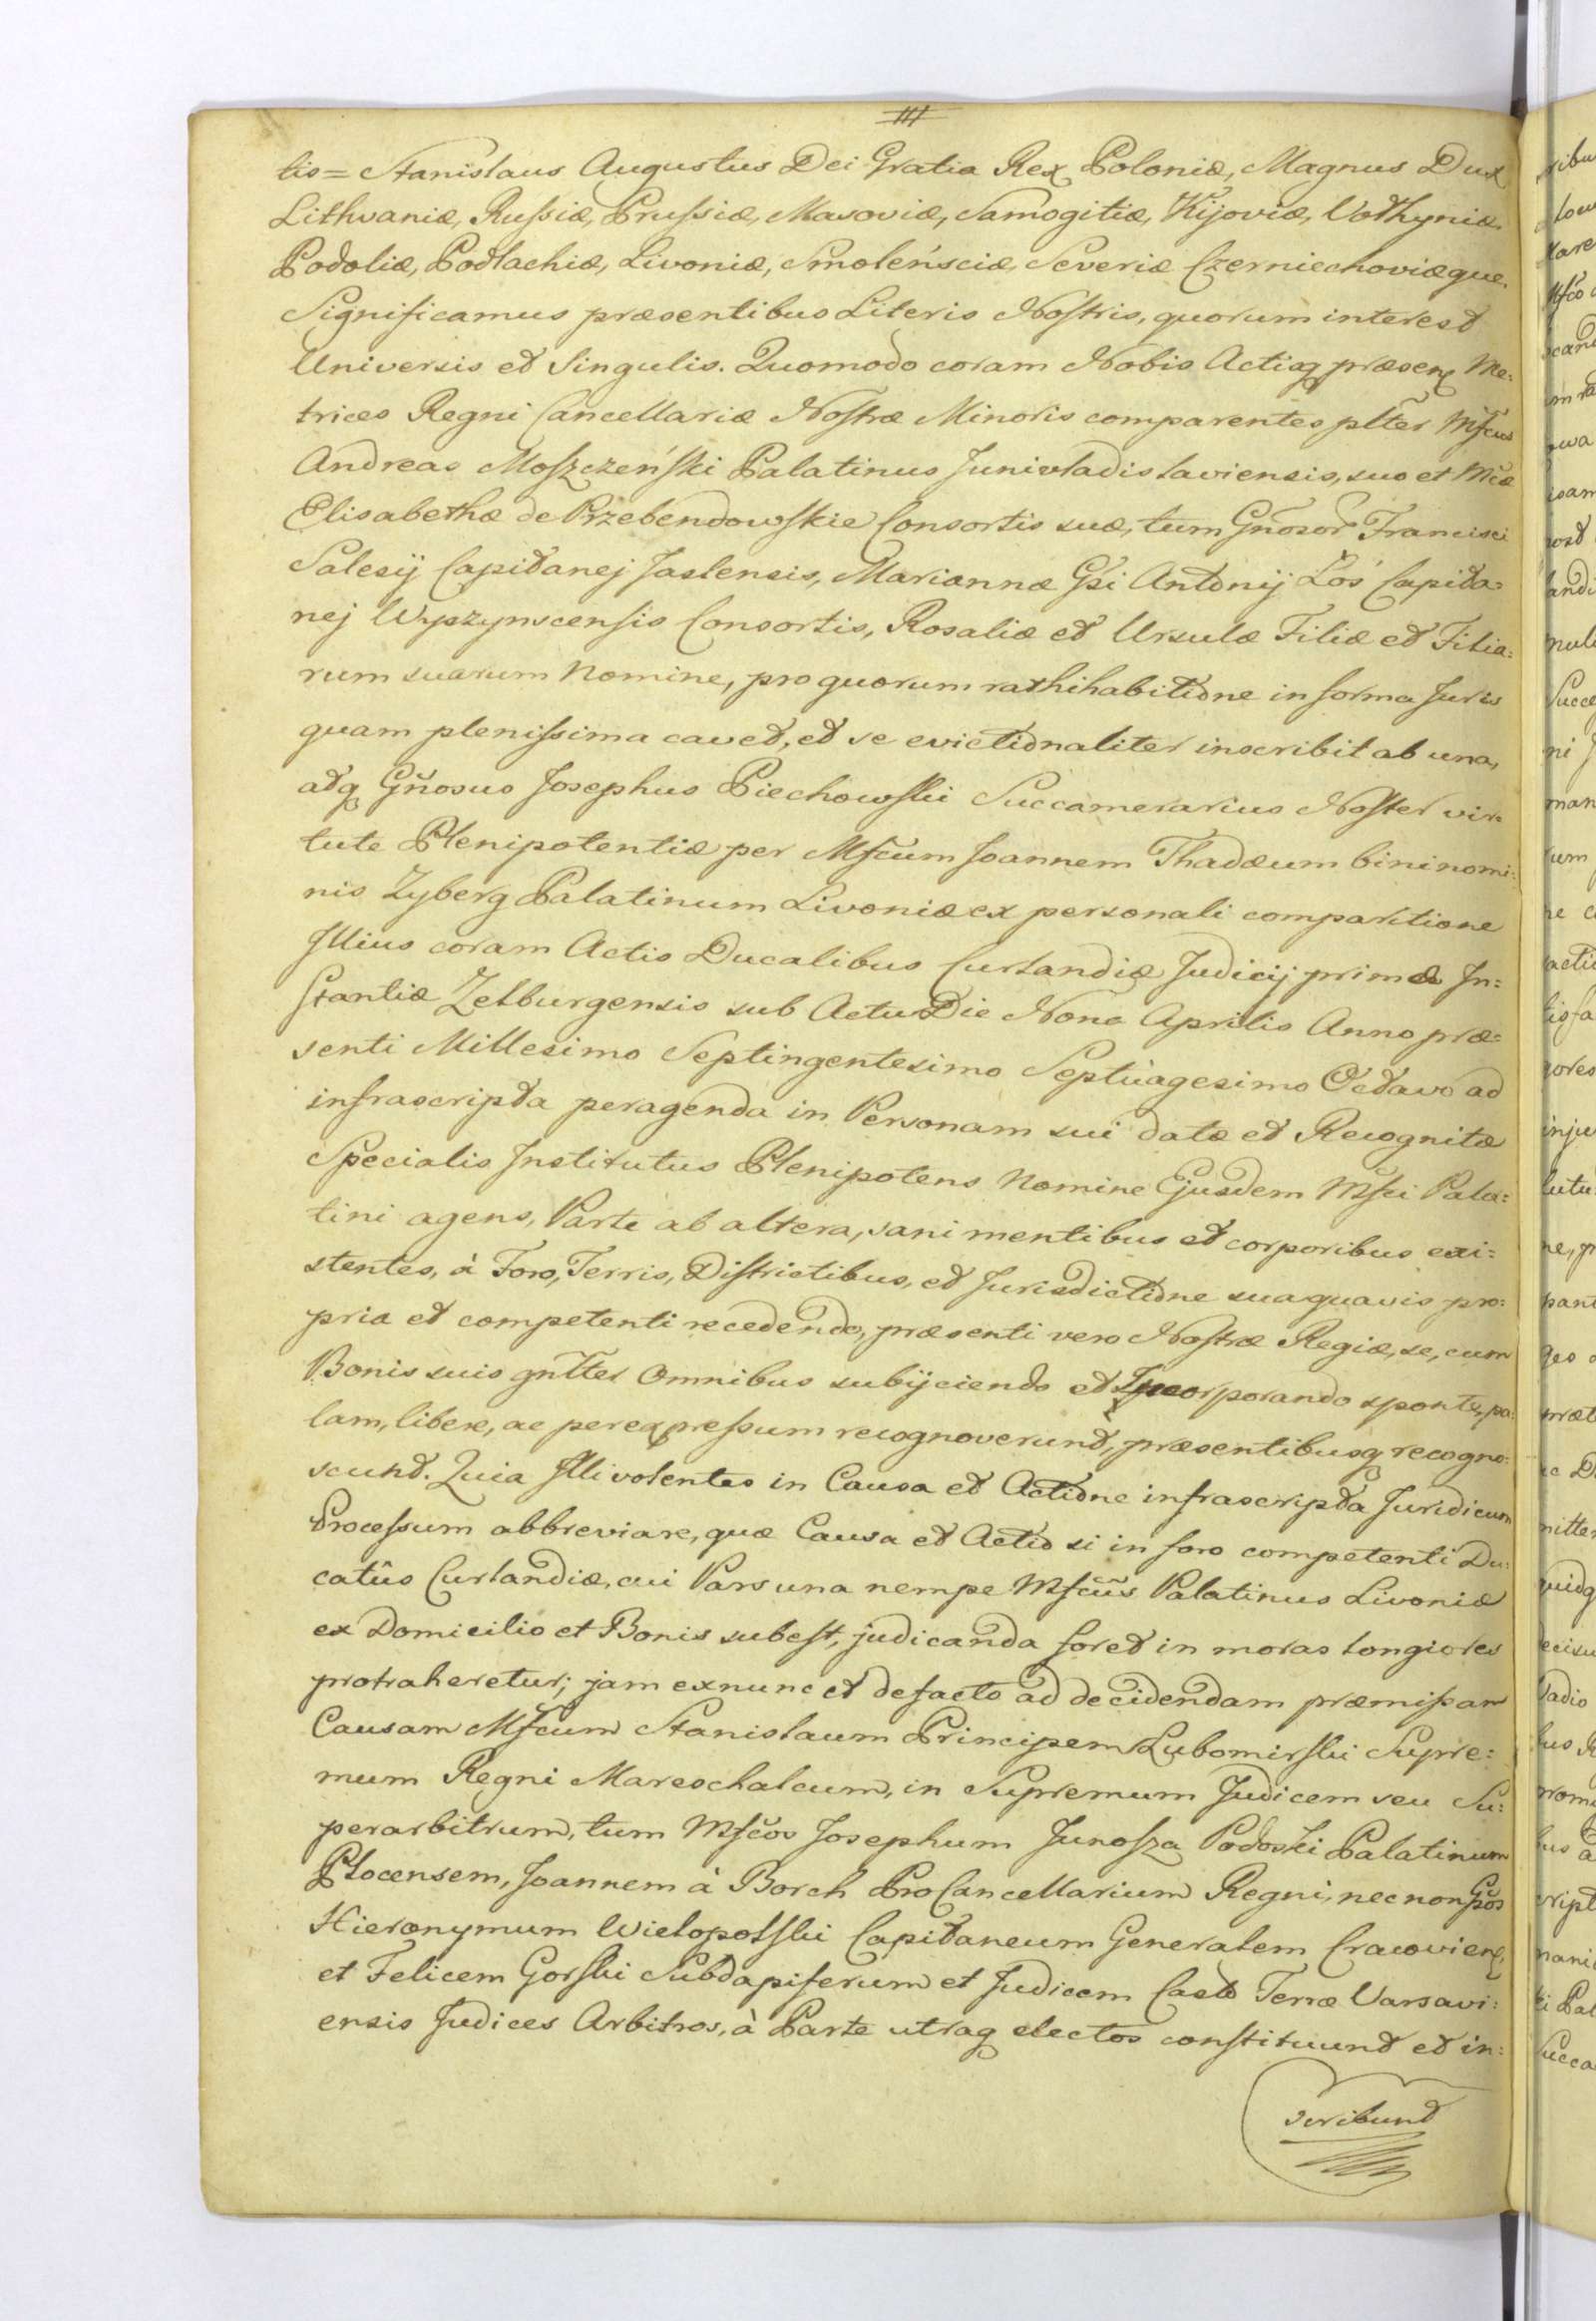 III
tis = Stanislaus Augustus Dei Gratia Rex Poloniæ, Magnus Dux
Lithvaniæ, Russiæ, Prussiæ, Masoviæ, Samogitiæ, Kijoviæ, Volhyniæ,
Podoliæ, Podlachiæ, Livoniæ, Smoleńsciæ, Severiæ Czerniechoviæque.
Significamus præsentibus Literis Nostris, quorum interest
Universis et Singulis. Quomodo coram Nobis Actisq præsen Me:
trices Regni Cancellariæ Nostræ Minoris comparentes plter Mfcus
Andreas Moszczeński Palatinus Junivladislaviensis, suo et Mcæ
Elisabethæ de Przebendowskie Consortis suæ, tum Gnosor Francisci
Salesij Capitanej Jaslensis, Mariannæ Gsi Antonij Łoś Capita:
nej Wyszynscensis Consortis, Rosaliæ et Ursulæ Filiæ et Filia:
rum suarum Nomine, pro quorum rathihabitione in forma Juris
quam plenissima cavet, et se evictionaliter inscribit ab una,
atq Gnosus Josephus Piechowski Succamerarius Noster vir:
tute Plenipotentiæ per Mfcum Joannem Thadæum bininomi:
nis Zyberg Palatinum Livoniæ ex personali comparitione
Illius coram Actis Ducalibus Curlandiæ Judicij primæ In:
stantiæ Zelburgensis sub Actu Die Nona Aprilis Anno præ:
senti Millesimo Septingentesimo Septuagesimo Octavo ad
infrascripta peragenda in Personam sui datæ et Recognitæ
Specialis Institutus Plenipotens Nomine Ejusdem Mfci Pala:
tini agens, Parte ab altera, sani mentibus et corporibus exi:
stentes, à Foro, Terris, Districtibus, et Jurisdictione sua quavis pro:
pria et competenti recedendo, præsenti vero Nostræ Regiæ, se, cum
Bonis suis gnlter Omnibus subijciendo et Incorporando sponte, pa:
lam, libere, ac per expressum recognoverunt, præsentibusq recogno:
scunt. Quia Illi volentes in Causa et Actione infrascripta Juridicum
Processum abbreviare, quæ Causa et Actio si in foro competenti Du:
catûs Curlandiæ, cui Pars una nempe Mfcus Palatinus Livoniæ
ex Domicilio et Bonis subest, judicanda foret in moras longiores
protraheretur; jam exnunc et defacto ad decidendam præmissam
Causam Mfcum Stanislaum Principem Lubomirski Supre:
mum Regni Mareschalcum, in Supremum Judicem seu Su:
perarbitrum, tum Mfcos Josephum Junosza Podoski Palatinum
Plocensem, Joannem à Borch ProCancellarium Regni, necnon Gsos
Hieronymum Wielopolski Capitaneum Generalem Cracovien,
et Felicem Gorski Subdapiferum et Judicem Castr Terræ Varsavi:
ensis Judices Arbitros, à Parte utraq electos constituunt et in:
scribunt